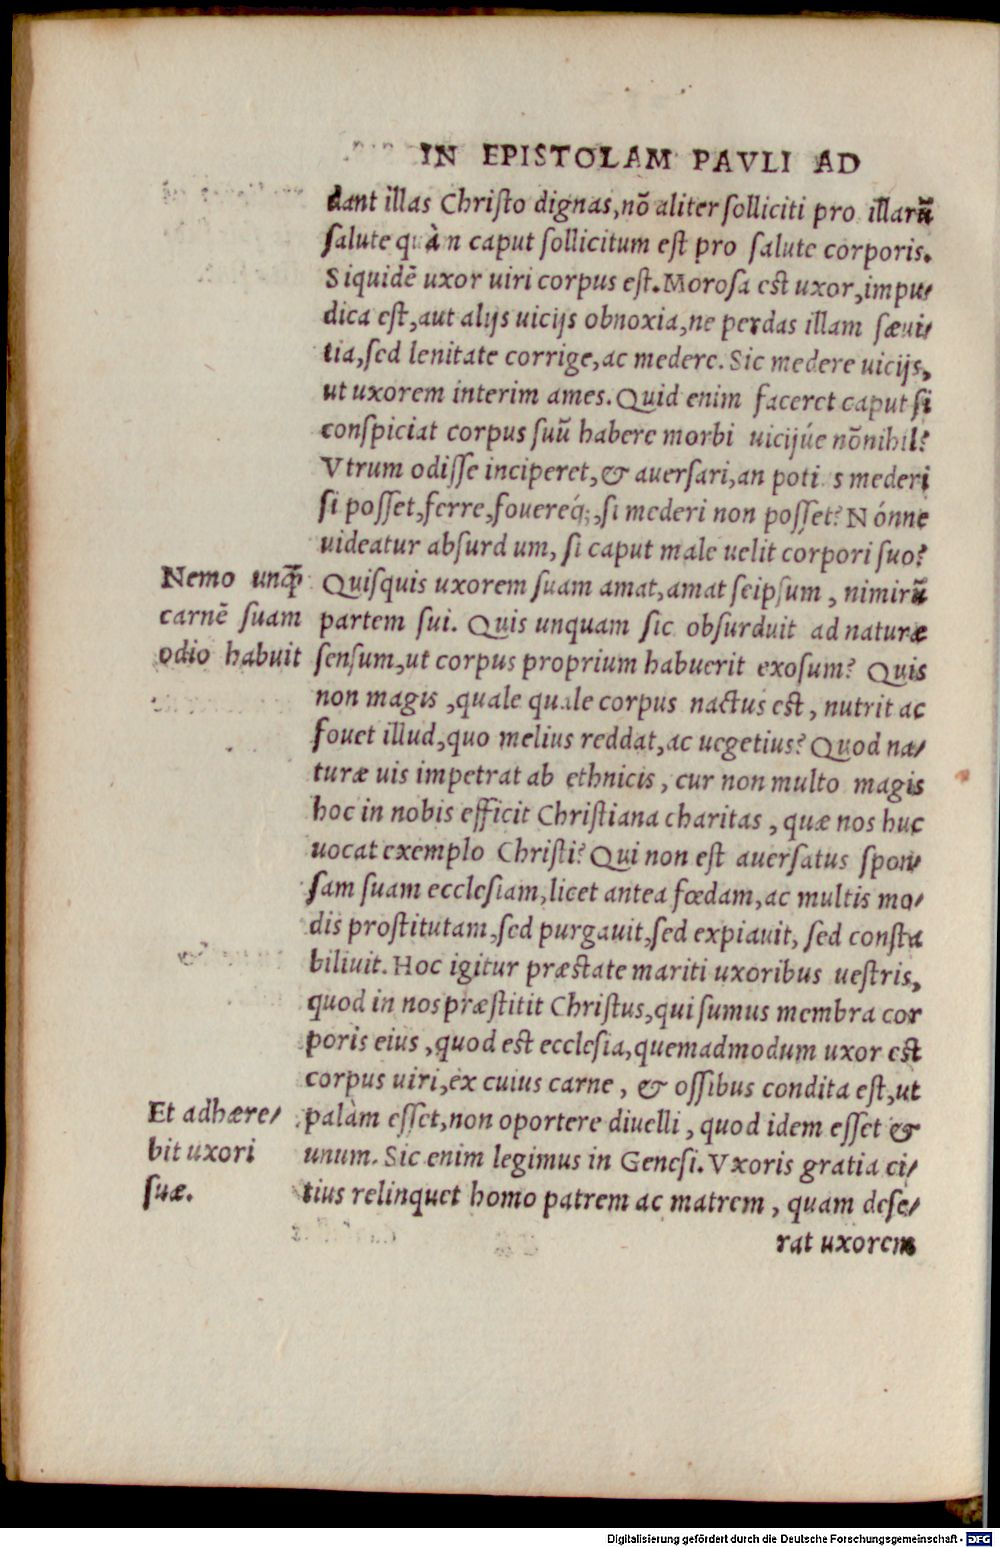 IN EPISTOLAM PAVLI AD
dant illas Chriſto dignas, nõ aliter ſolliciti pro illarũ
ſalute quàn caput ſollicitum eſt pro ſalute corporis.
Siquidẽ uxor uiri corpus eſt. Moroſa eſt uxor, impu/
dica eſt, aut alijs uicijs obnoxia, ne perdas illam ſæui/
tia, ſed lenitate corrige, ac medere. Sic medere uicijs,
ut uxorem interim ames. Quid enim faceret caput ſi
conſpiciat corpus ſuũ habere morbi uicijúe nõnihil?
Vtrum odiſſe inciperet, & auerſari, an poti s mederi
ſi poſſet, ferre, fouereq́;, ſi mederi non poſſet? Nónne
uideatur abſurd um, ſi caput male uelit corpori ſuo?
Nemo unq̃
carnẽ ſuam
odio habuit
Quiſquis uxorem ſuam amat, amat ſeipſum, nimirũ
partem ſui. Quis unquam ſic obſurduit ad naturæ
ſenſum, ut corpus proprium habuerit exoſum? Quis
non magis, quale quale corpus nactus eſt, nutrit ac
fouet illud, quo melius reddat, ac uegetius? Quod na/
turæ uis impetrat ab ethnicis, cur non multo magis
hoc in nobis efficit Chriſtiana charitas, quæ nos huc
uocat exemplo Chriſti? Qui non eſt auerſatus ſpon/
ſam ſuam eccleſiam, licet antea fœdam, ac multis mo/
dis proſtitutam, ſed purgauit, ſed expiauit, ſed conſta
biliuit. Hoc igitur præſtate mariti uxoribus ueſtris,
quod in nos præſtitit Chriſtus, qui ſumus membra cor
poris eius, quod eſt eccleſia, quemadmodum uxor eſt
corpus uiri, ex cuius carne, & oſſibus condita eſt, ut
Et adhære/
bit uxori
ſuæ.
palàm eſſet, non oportere diuelli, quod idem eſſet &
unum. Sic enim legimus in Geneſi. Vxoris gratia ci/
tius relinquet homo patrem ac matrem, quam deſe/
rat uxorem
Digitalisierung gefördert durch die Deutsche Forschungsgemeinschaft - DFG